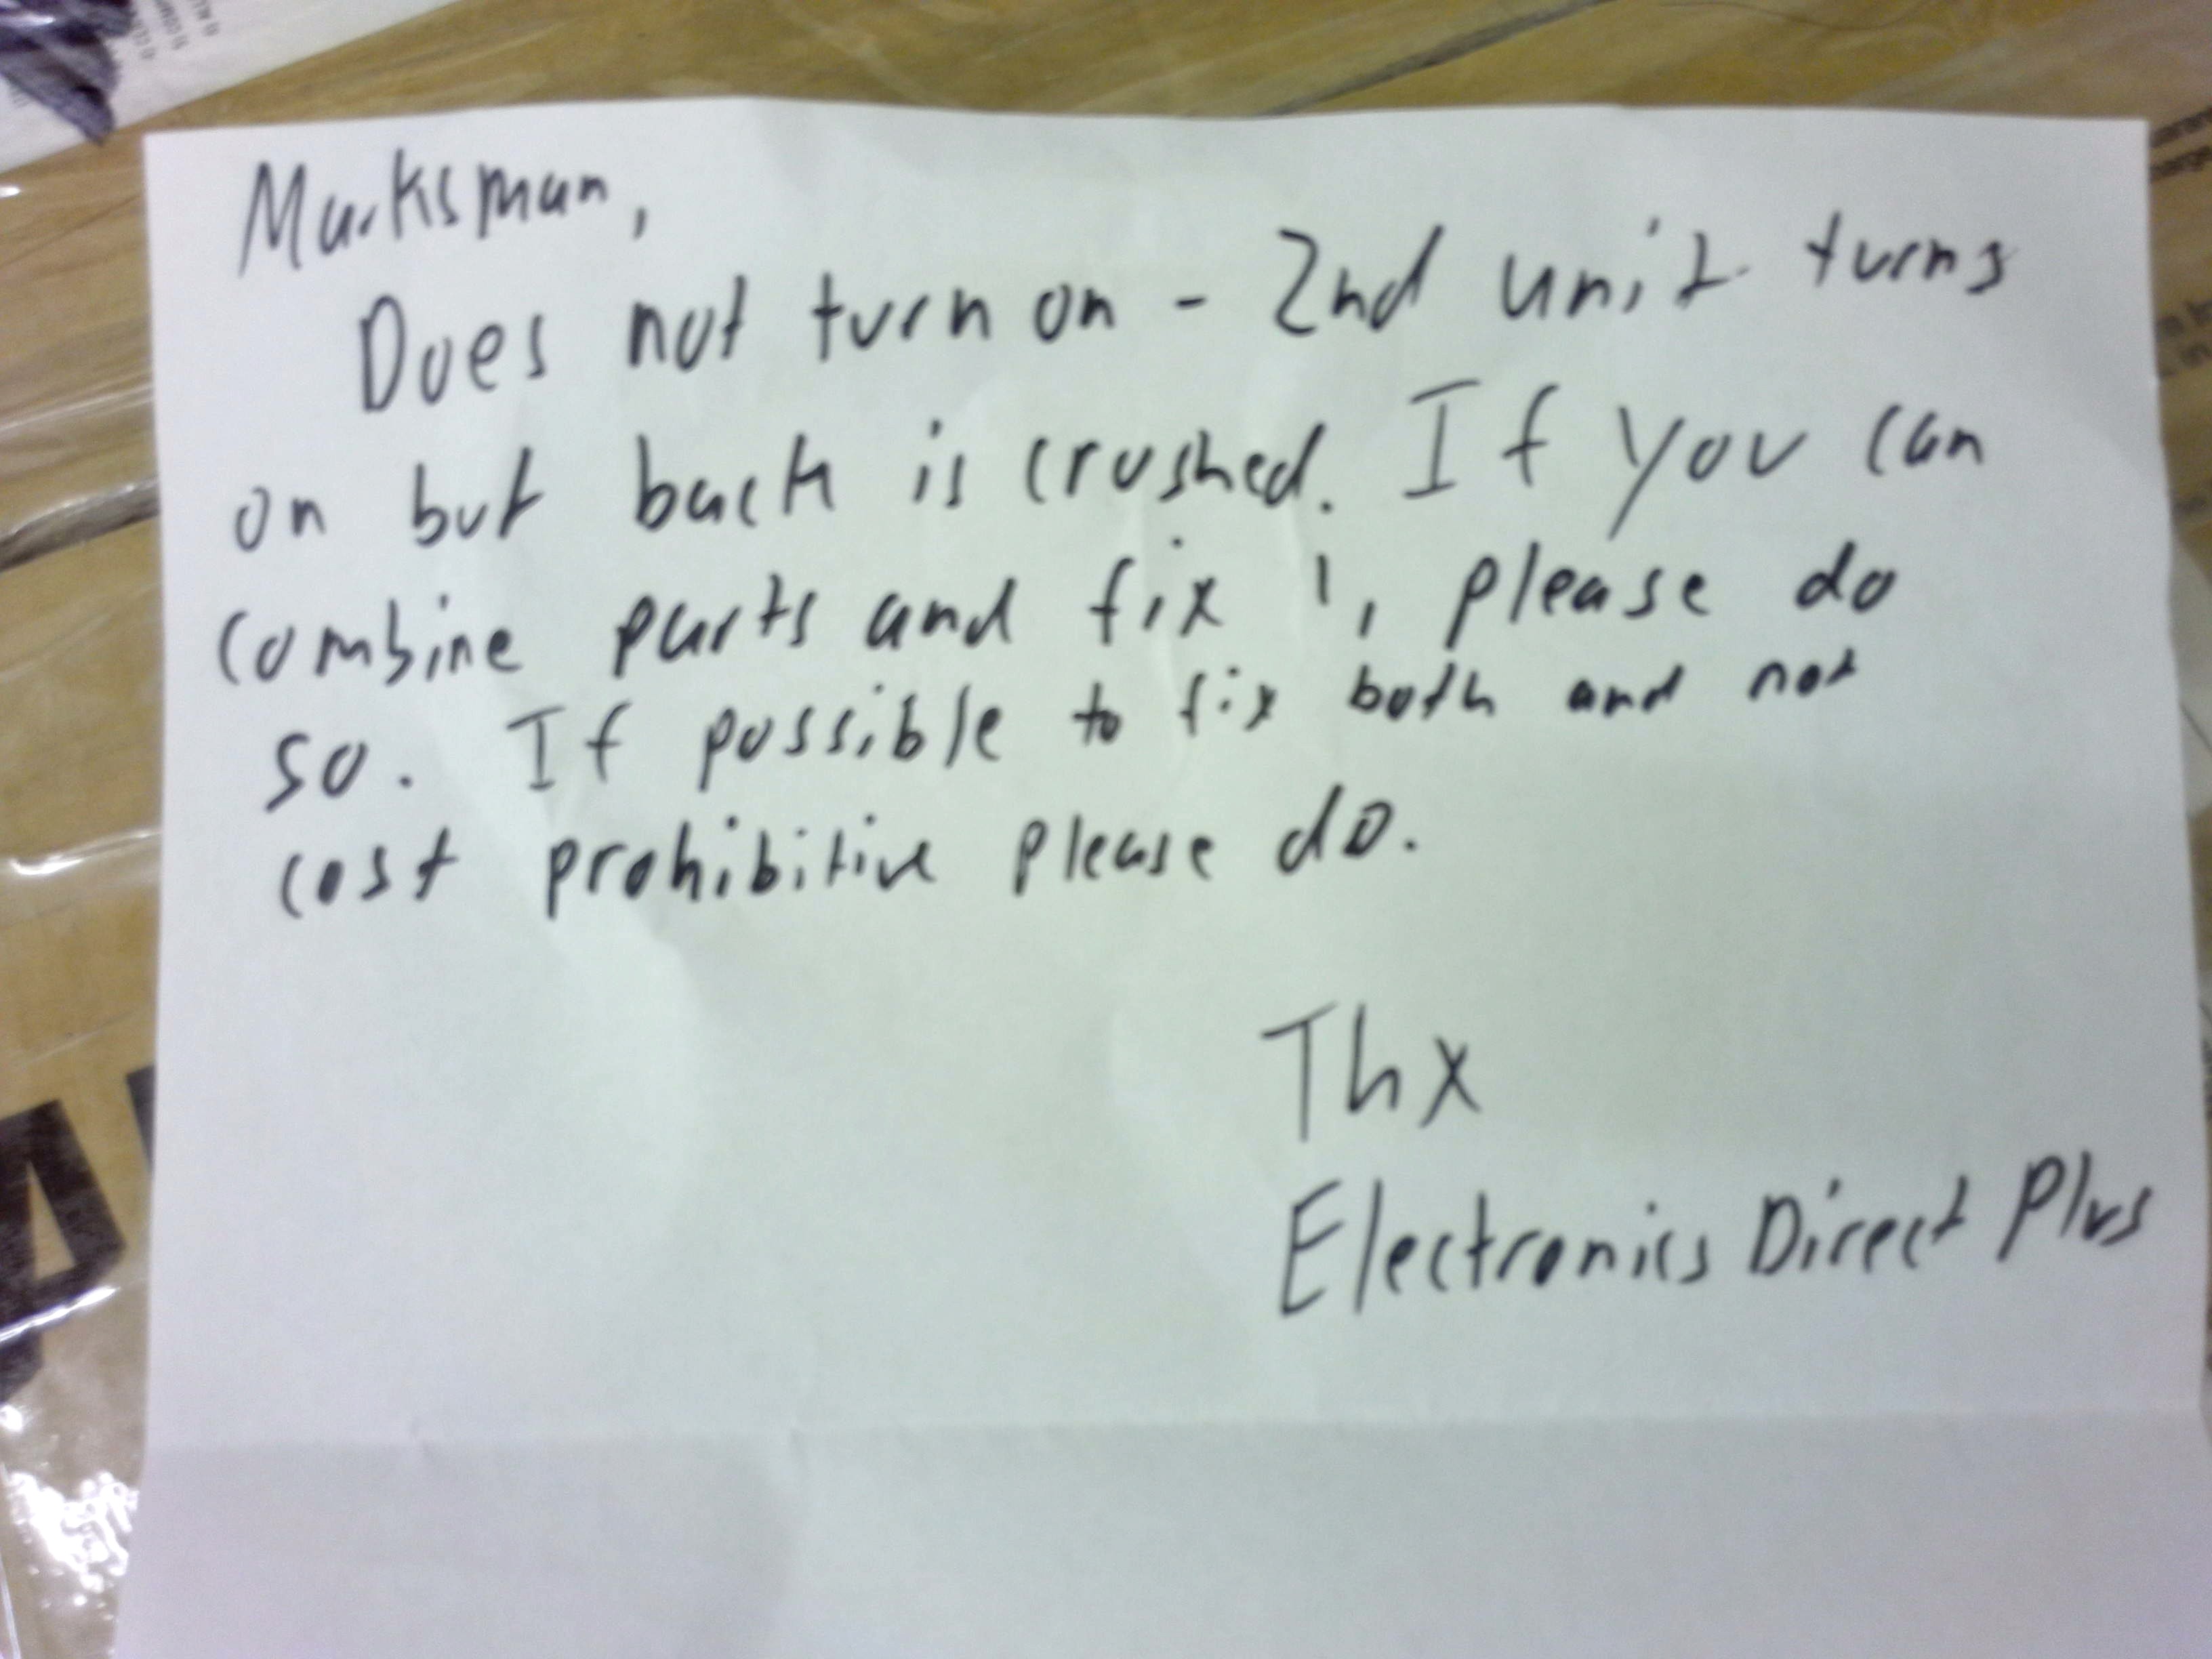 Marksman,
Does not turn on - 2nd unit turns
on but back is crushed. If you can
combine parts and fix 1, please do
so. If possible to fix both and not
cost prohibitive please do.
Thx
Electronics Direct Plus